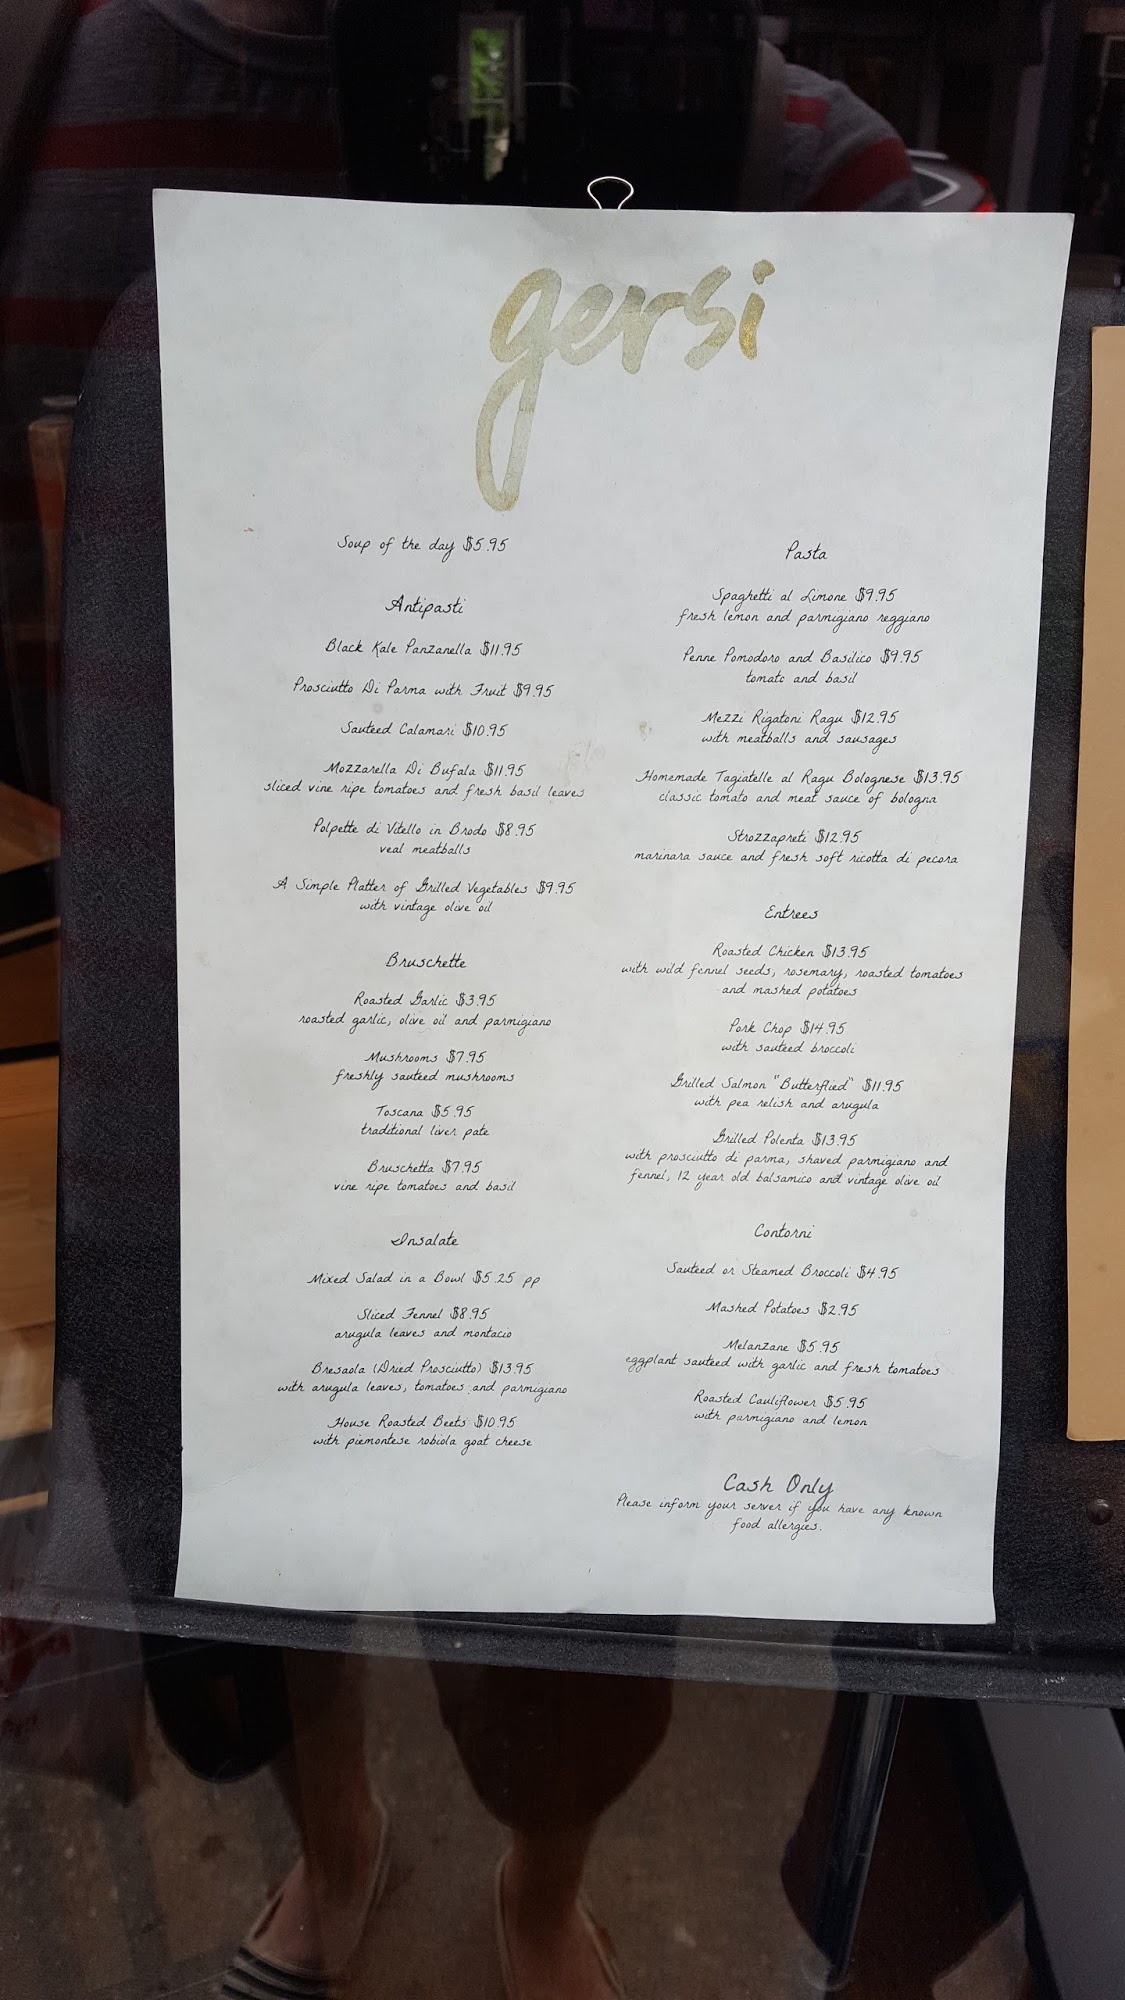 gersi
Soup of the day $5.95
Antipasti
Black Kale Panzanella $11.95
Prosciutto Di Parma with Fruit $9.95
Sauteed Calamari $10.95
Mozzarella Di Bufala $11.95
sliced vine ripe tomatoes and fresh basil leaves
Polpette di Vitello in Brodo $8.95
veal meatballs
A Simple Platter of Grilled Vegetables $9.95
with vintage olive oil
Bruschette
Roasted Garlic $3.95
roasted garlic, olive oil and parmigiano
Mushrooms $7.95
freshly sauteed mushrooms
Toscana $5.95
traditional liver pate
Bruschetta $7.95
vine ripe tomatoes and basil
Insalate
Mixed Salad in a Bowl $5.25 pp
Sliced Fennel $8.95
arugula leaves and montacio
Bresaola (Dried Prosciutto) $13.95
with arugula leaves, tomatoes and parmigiano
House Roasted Beets $10.95
with piemontese robiola goat cheese
Pasta
Spaghetti al Limone $9.95
fresh lemon and parmigiano reggiano
Penne Pomodoro and Basilico $9.95
tomato and basil
Mezzi Rigatoni Ragu $12.95
with meatballs and sausages
Homemade Tagiatelle al Ragu Bolognese $13.95
classic tomato and meat sauce of bologna
Strozzapreti $12.95
marinara sauce and fresh soft ricotta di pecora
Entrees
Roasted Chicken $13.95
with wild fennel seeds, rosemary, roasted tomatoes
and mashed potatoes
Pork Chop $14.95
with sauteed broccoli
Grilled Salmon "Butterflied" $11.95
with pea relish and arugula
Grilled Polenta $13.95
with prosciutto di parma, shaved parmigiano and
fennel, 12 year old balsamico and vintage olive oil
Contorni
Sauteed or Steamed Broccoli $4.95
Mashed Potatoes $2.95
Melanzane $5.95
eggplant sauteed with garlic and fresh tomatoes
Roasted Cauliflower $5.95
with parmigiano and lemon
Cash Only
Please inform your server if you have any known
food allergies.